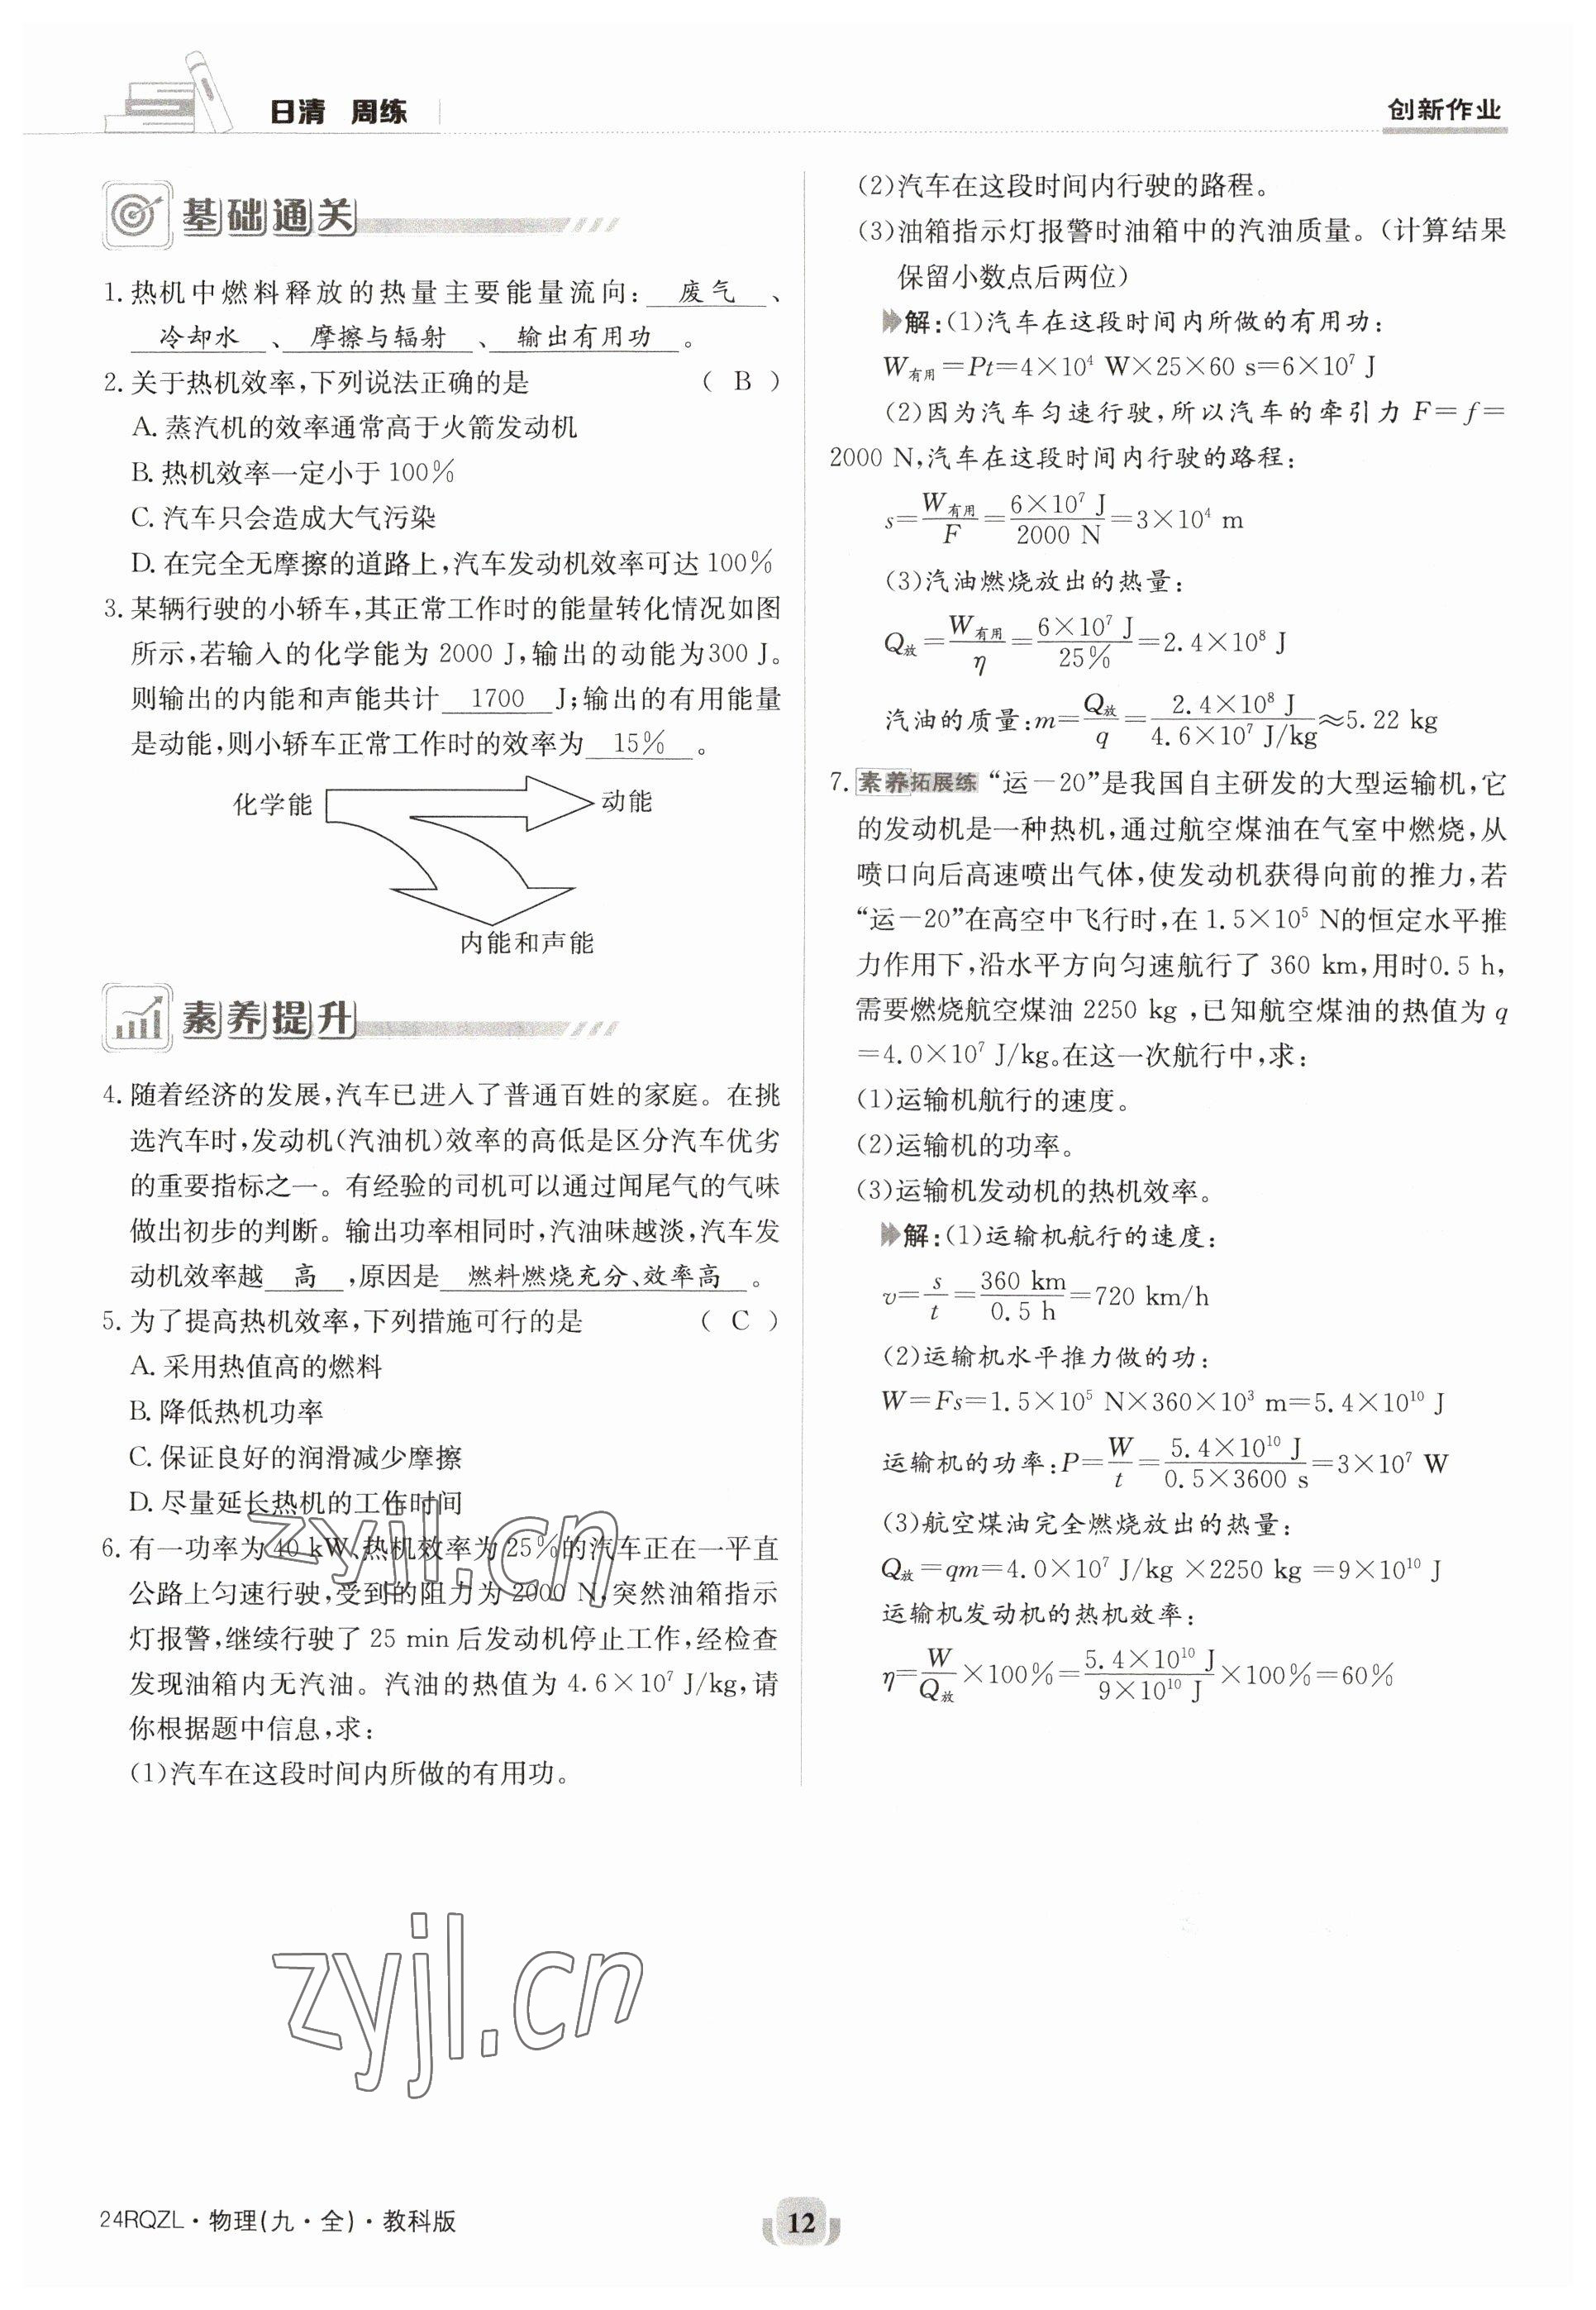 日清 周练
创新作业
基础通关
1. 热机中燃料释放的热量主要能量流向: 废气 、
冷却水 、 摩擦与辐射 、 输出有用功 。
2. 关于热机效率,下列说法正确的是 ( B )
A. 蒸汽机的效率通常高于火箭发动机
B. 热机效率一定小于 100%
C. 汽车只会造成大气污染
D. 在完全无摩擦的道路上,汽车发动机效率可达 100%
3. 某辆行驶的小轿车,其正常工作时的能量转化情况如图
所示,若输入的化学能为 2000 J,输出的动能为300 J。
则输出的内能和声能共计 1700 J;输出的有用能量
是动能,则小轿车正常工作时的效率为 15% 。
化学能
动能
内能和声能
素养提升
4. 随着经济的发展,汽车已进入了普通百姓的家庭。在挑
选汽车时,发动机(汽油机)效率的高低是区分汽车优劣
的重要指标之一。有经验的司机可以通过闻尾气的气味
做出初步的判断。输出功率相同时,汽油味越淡,汽车发
动机效率越 高 ,原因是 燃料燃烧充分、效率高 。
5. 为了提高热机效率,下列措施可行的是 ( C )
A. 采用热值高的燃料
B. 降低热机功率
C. 保证良好的润滑减少摩擦
D. 尽量延长热机的工作时间
6. 有一功率为 40 kW、热机效率为 25%的汽车正在一平直
公路上匀速行驶,受到的阻力为 2000 N,突然油箱指示
灯报警,继续行驶了 25 min 后发动机停止工作,经检查
发现油箱内无汽油。汽油的热值为 4.6×10⁷ J/kg,请
你根据题中信息,求:
(1)汽车在这段时间内所做的有用功。
(2)汽车在这段时间内行驶的路程。
(3)油箱指示灯报警时油箱中的汽油质量。(计算结果
保留小数点后两位)
解:(1)汽车在这段时间内所做的有用功:
W有用=Pt=4×10⁴ W×25×60 s=6×10⁷ J
(2)因为汽车匀速行驶,所以汽车的牵引力 F=f=
2000 N,汽车在这段时间内行驶的路程:
s=W有用/F=6×10⁷ J/2000 N=3×10⁴ m
(3)汽油燃烧放出的热量:
Q放=W有用/η=6×10⁷ J/25%=2.4×10⁸ J
汽油的质量:m=Q放/q=2.4×10⁸ J/4.6×10⁷ J/kg≈5.22 kg
7. 素养拓展练 “运—20”是我国自主研发的大型运输机,它
的发动机是一种热机,通过航空煤油在气室中燃烧,从
喷口向后高速喷出气体,使发动机获得向前的推力,若
“运—20”在高空中飞行时,在 1.5×10⁵ N的恒定水平推
力作用下,沿水平方向匀速航行了 360 km,用时0.5 h,
需要燃烧航空煤油 2250 kg ,已知航空煤油的热值为 q
=4.0×10⁷ J/kg。在这一次航行中,求:
(1)运输机航行的速度。
(2)运输机的功率。
(3)运输机发动机的热机效率。
解:(1)运输机航行的速度:
v=s/t=360 km/0.5 h=720 km/h
(2)运输机水平推力做的功:
W=Fs=1.5×10⁵ N×360×10³ m=5.4×10¹⁰ J
运输机的功率:P=W/t=5.4×10¹⁰ J/0.5×3600 s=3×10⁷ W
(3)航空煤油完全燃烧放出的热量:
Q放=qm=4.0×10⁷ J/kg ×2250 kg =9×10¹⁰ J
运输机发动机的热机效率:
η=W/Q放×100%=5.4×10¹⁰ J/9×10¹⁰ J×100%=60%
zyjl.cn
zyjl.cn
24RQZL·物理(九·全)·教科版
12